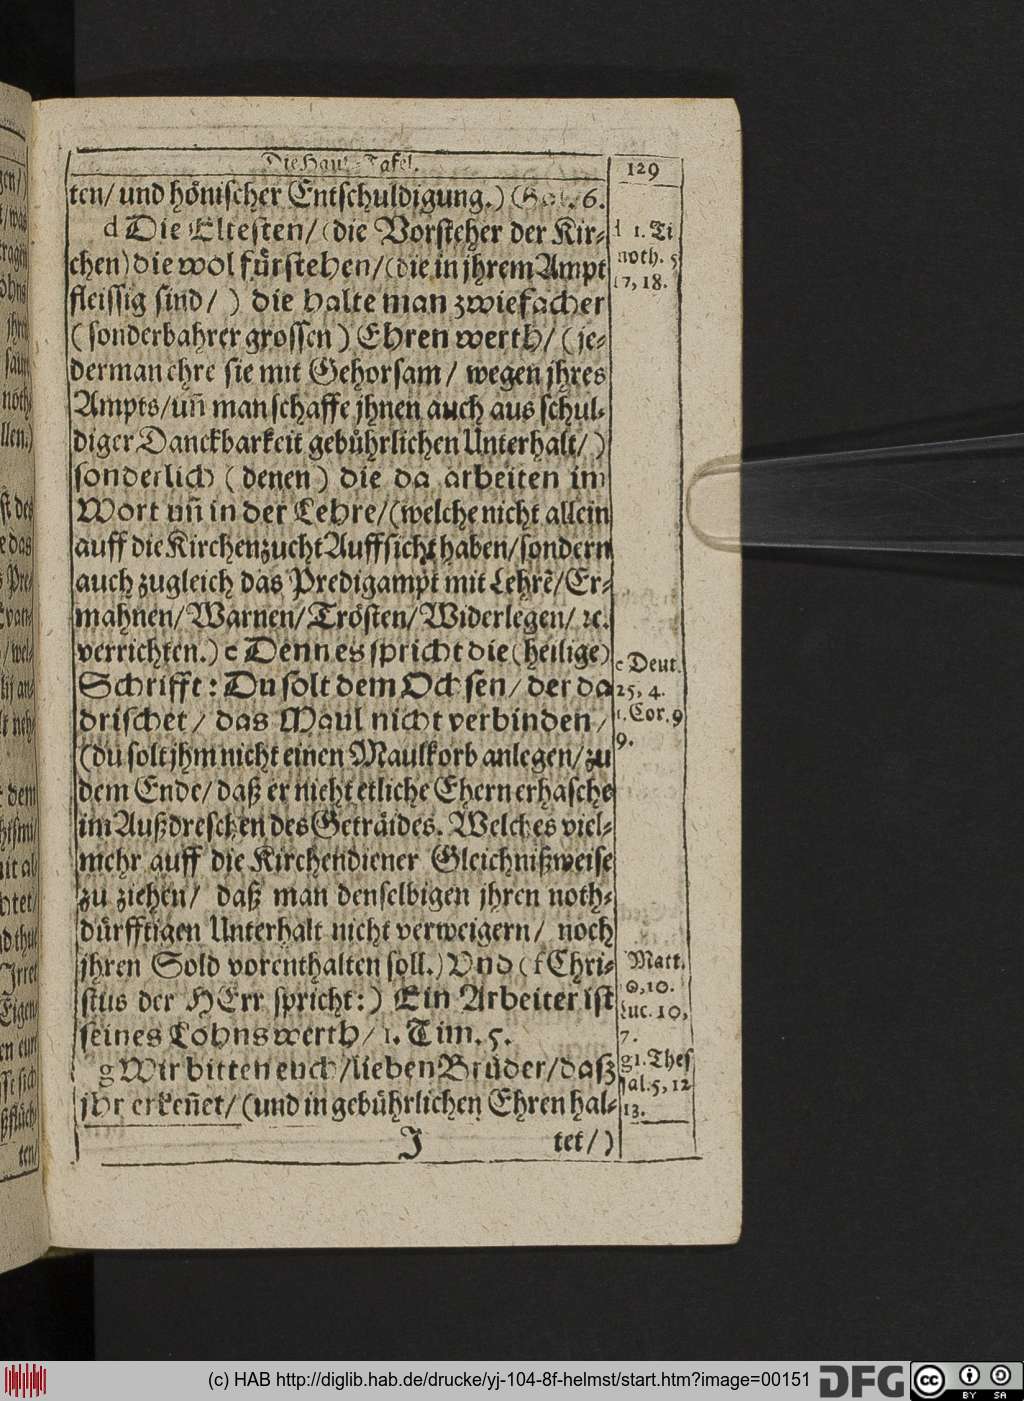 Die Hauß-Tafel.
129
ten/ und hönischer Entschuldigung.) (Gal. 6.
d Die Eltesten/ (die Vorsteher der Kir-
chen) die wol fürstehen/ (die in jhrem Ampt
fleissig sind/ ) die halte man zwiefacher
( sonderbahrer grossen ) Ehren werth/ ( je-
derman ehre sie mit Gehorsam/ wegen jhres
Ampts/ uñ man schaffe jhnen auch aus schul-
diger Danckbarkeit gebührlichen Unterhalt/ )
sonderlich ( denen ) die da arbeiten im
Wort uñ in der Lehre/ (welche nicht allein
auff die Kirchenzucht Auffsicht haben/ sondern
auch zugleich das Predigampt mit Lehrē/ Er-
mahnen/ Warnen/ Trösten/ Widerlegen/ ꝛc.
verrichten.) e Denn es spricht die (heilige)
Schrifft: Du solt dem Ochsen/ der da
drischet/ das Maul nicht verbinden/
(du solt jhm nicht einen Maulkorb anlegen/ zu
dem Ende/ daß er nicht etliche Ehern erhasche
im Außdreschen des Geträides. Welches viel-
mehr auff die Kirchendiener Gleichnißweise
zu ziehen/ daß man denselbigen jhren noth-
dürfftigen Unterhalt nicht verweigern/ noch
jhren Sold vorenthalten soll.) Und ( f Chri-
stus der HErr spricht: ) Ein Arbeiter ist
seines Lohns werth/ 1. Tim. 5.
g Wir bitten euch/ lieben Brüder/ daß
jhr erkeñet/ (und in gebührlichen Ehren hal-
J
tet/ )
d 1. Ti
moth. 5
17, 18.
e Deut.
25, 4.
1. Cor. 9
9.
Matt.
10, 10.
Luc. 10,
7.
g 1. Thes
sal. 5, 12
13.
(c) HAB http://diglib.hab.de/drucke/yj-104-8f-helmst/start.htm?image=00151
DFG
cc
BY SA